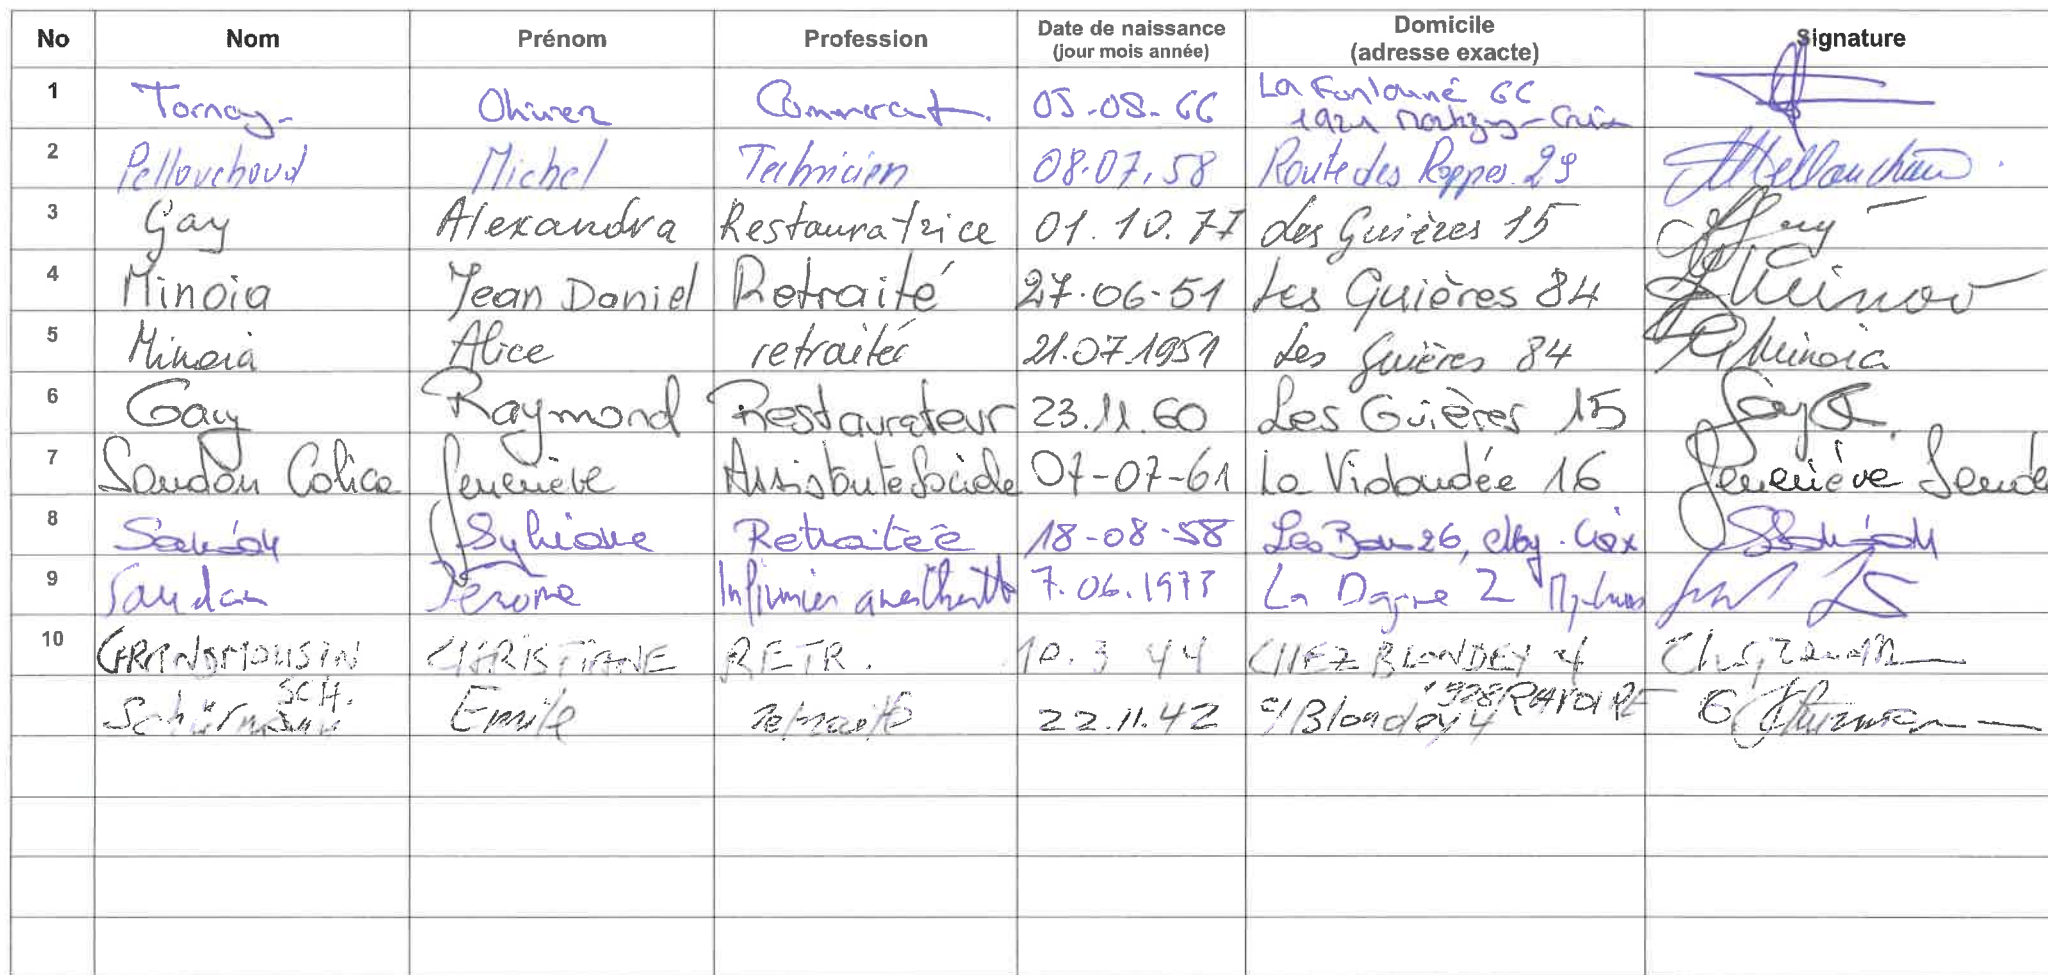 No Nom Prénom Profession Date de naissance (jour mois année) Domicile (adresse exacte) Signature
1 Tornay Olivier Commerçant. 05-08-66 La Fontaine 66
1921 Martigny-Croix
2 Pellouchoud Michel Technicien 08.07.58 Route des Rappes 29
3 Gay Alexandra Restauratrice 01.10.77 Les Guières 15 Gay
4 Minoia Jean Daniel Retraité 27.06.51 Les Guières 84
5 Minoia Alice retraitée 21.07.1951 Les Guières 84 Minoia
6 Gay Raymond Restaurateur 23.11.60 Les Guières 15 Gay
7 Saudan Colica Geneviève Assistante Sociale 07-07-61 La Vidondée 16 Geneviève
8 Sylviane Retraitée 18-08-58 26,
9 Saudan Jérôme Infirmier 7.06.1973 La 2
10 GRANDMOUSIN CHRISTIANE RETR. 10.3 44 CHEZ BLONDEY 4
SCH. 1928 RAVOIRE
Schürmann Emile retraité 22.11.42 c/Blondey 4